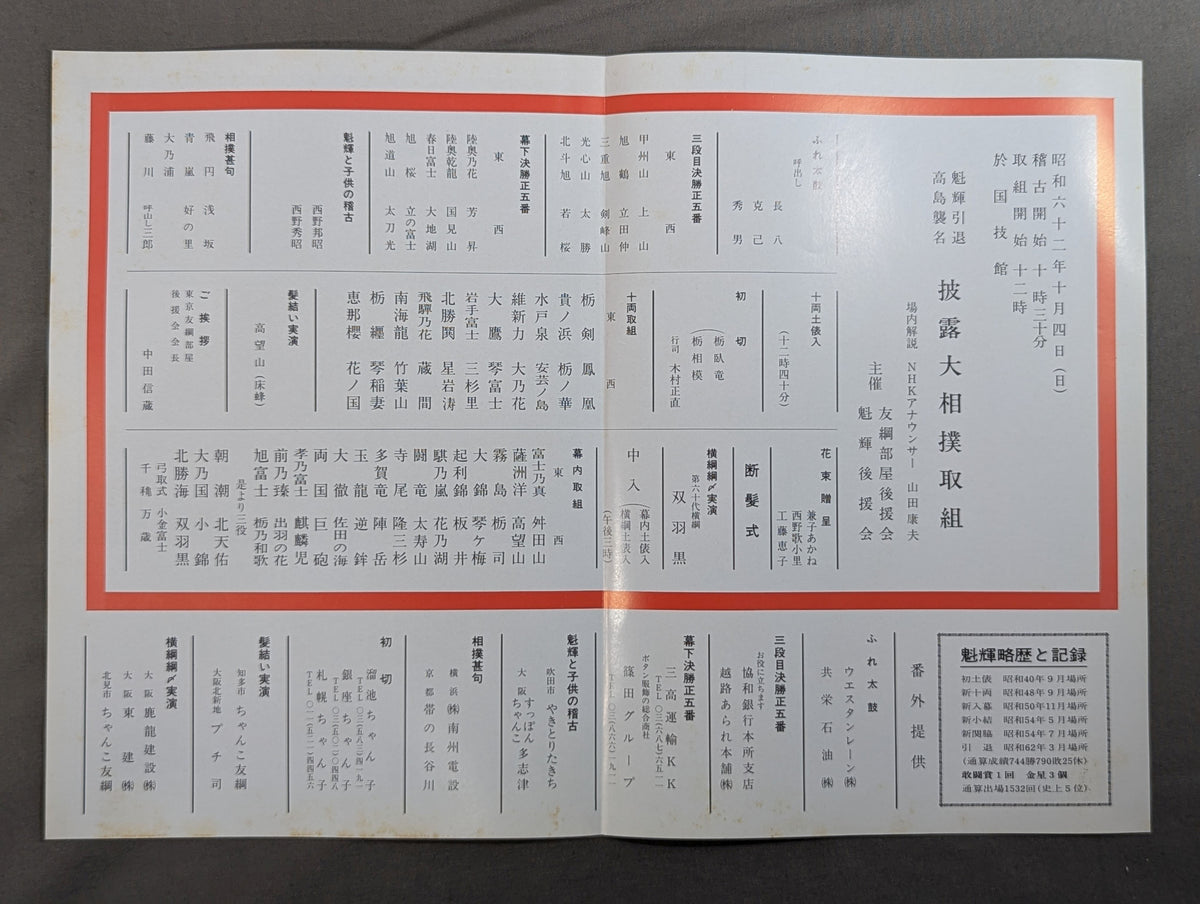 昭和六十二年十月四日（日）
稽古開始 十時三十分
取組開始 十二時
於国技館
魁輝引退
高島襲名
披露大相撲取組
場内解説 NHKアナウンサー 山田康夫
主催
友綱部屋後援会
魁輝後援会
ふれ太鼓
呼出し
長八
克己
秀男
三段目決勝正五番
東 西
甲州山 上山
旭鶴 立田仲
三重旭 剣峰山
光心山 太勝
北斗旭 若桜
幕下決勝正五番
東 西
陸奥乃花 芳昇
陸奥乾龍 国見山
春日富士 大地湖
旭桜 立の富士
旭道山 太刀光
魁輝と子供の稽古
西野邦昭
西野秀昭
相撲甚句
飛円 浅坂
青嵐 好の里
大乃浦
藤川 呼出し三郎
十両土俵入
（十二時四十分）
初切
栃臥竜
栃相模
行司 木村正直
十両取組
東 西
栃剣 鳳凰
貴ノ浜 栃ノ華
水戸泉 安芸ノ島
維新力 大乃花
大鷹 琴富士
岩手富士 三杉里
北勝鬨 星岩涛
飛騨乃花 蔵間
南海龍 竹葉山
栃纒 琴稲妻
恵那櫻 花ノ国
髪結い実演
高望山（床蜂）
ご挨拶
東京友綱部屋
後援会会長
中田信蔵
花束贈呈
兼子あかね
西野歌小里
工藤恵子
断髪式
横綱綱〆実演
第六十代横綱
双羽黒
中入
幕内土俵入
横綱土俵入
（午後三時）
幕内取組
東 西
富士乃真 舛田山
薩洲洋 高望山
霧島 栃司
大錦 琴ケ梅
起利錦 板井
騏乃嵐 花乃湖
闘竜 太寿山
寺尾 隆三杉
多賀竜 陣岳
玉龍 逆鉾
大徹 佐田の海
両国 巨砲
孝乃富士 麒麟児
前乃臻 出羽の花
旭富士 栃乃和歌
是より三役
朝潮 北天佑
大乃国 小錦
北勝海 双羽黒
弓取式 小金富士
千穐万歳
魁輝略歴と記録
初土俵 昭和40年9月場所
新十両 昭和48年9月場所
新入幕 昭和50年11月場所
新小結 昭和54年5月場所
新関脇 昭和54年7月場所
引退 昭和62年3月場所
（通算成績744勝790敗25休）
敢闘賞1回 金星3個
通算出場1532回（史上5位）
番外提供
ふれ太鼓
ウエスタンレーン㈱
共栄石油㈱
三段目決勝正五番
お役に立ちます
協和銀行本所支店
越路あられ本舗㈱
幕下決勝正五番
三高運輸KK
ボタン服飾の総合商社
篠田グループ
魁輝と子供の稽古
吹田市 やきとりたきち
大阪 すっぽん ちゃんこ 多志津
相撲甚句
横浜 ㈱南州電設
京都 帯の長谷川
初切
溜池ちゃん子
銀座ちゃん子
札幌ちゃん子
髪結い実演
知多市 ちゃんこ友綱
大阪北新地 プチ司
横綱綱〆実演
大阪 鹿龍建設㈱
大阪 東建㈱
北見市 ちゃんこ友綱